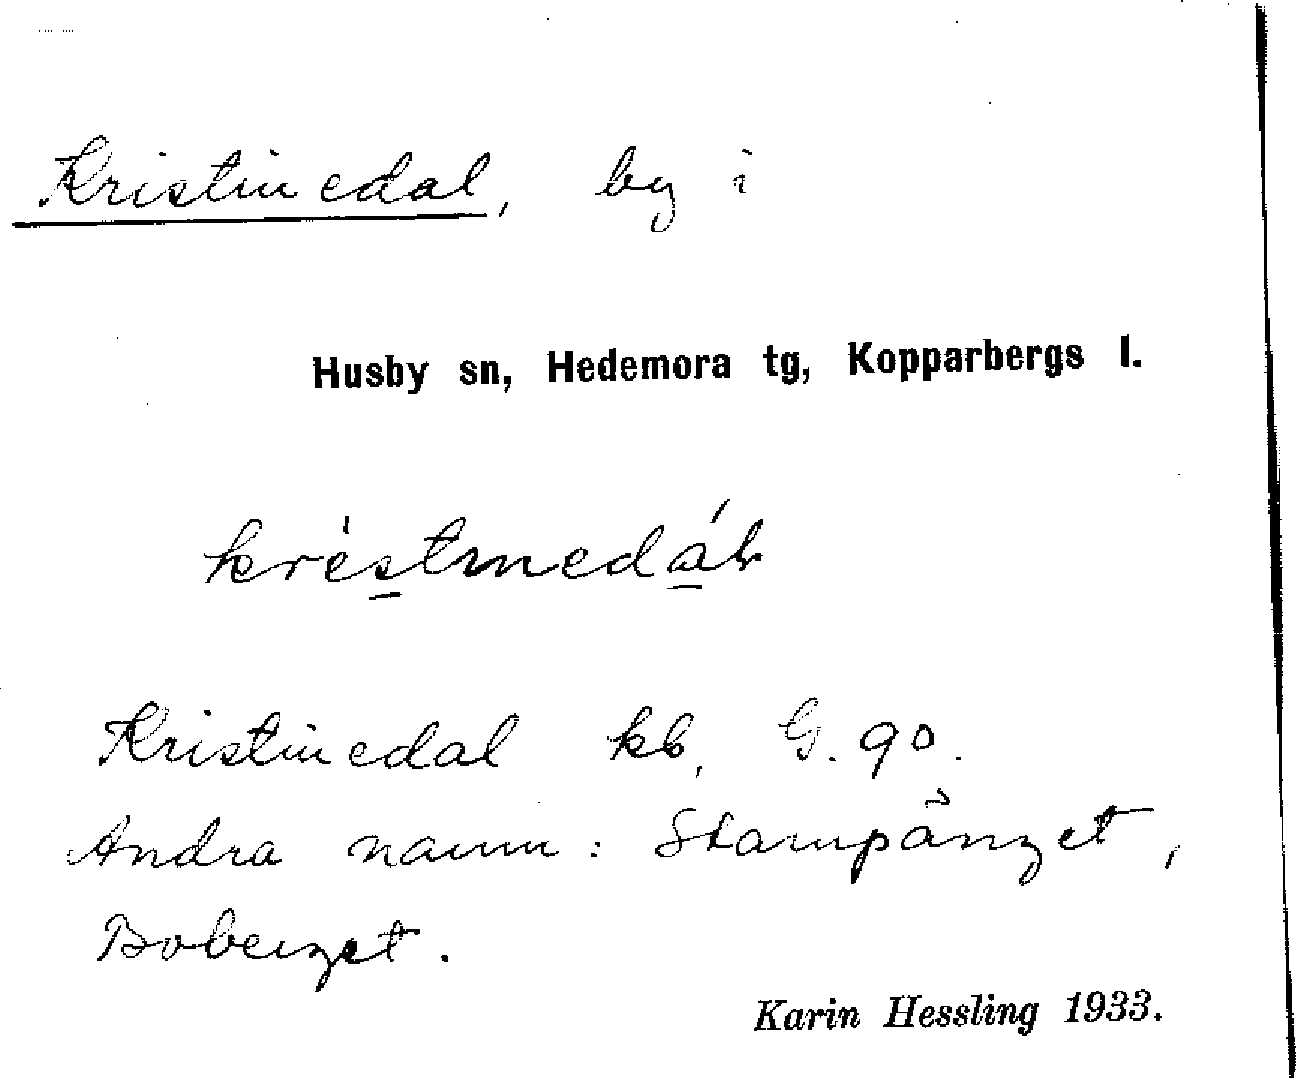 Kristinedal, by i
Husby sn, Hedemora tg, Kopparbergs l.
Kristinedal kb, G. 90.
Andra namn: Stampånget,
Boberget.
Karin Hessling 1933.